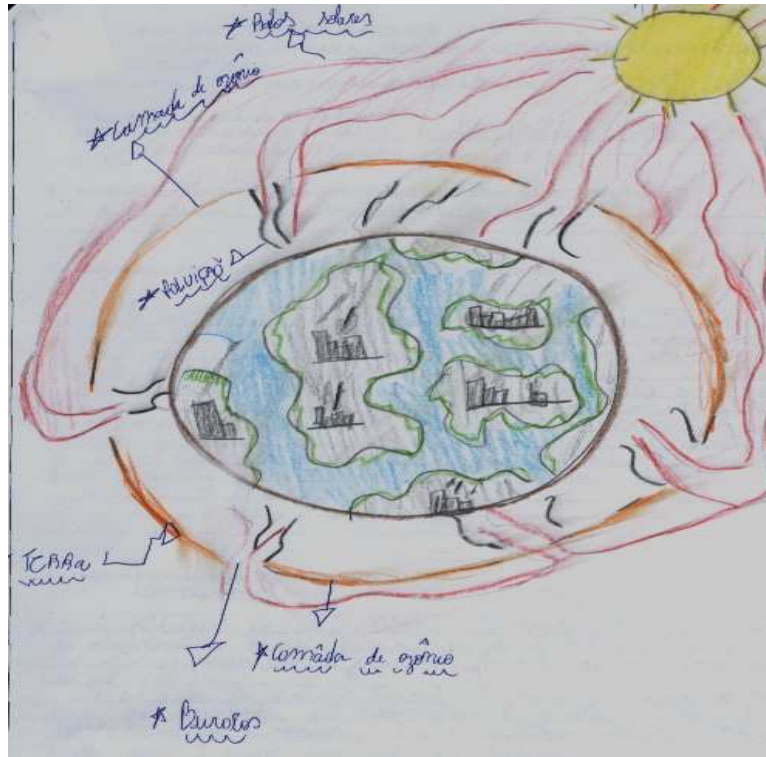 * Raios solares
* Camada de ozônio
* POLUIÇÃO
TERRA
* Camâda de ozônio
* Buracos